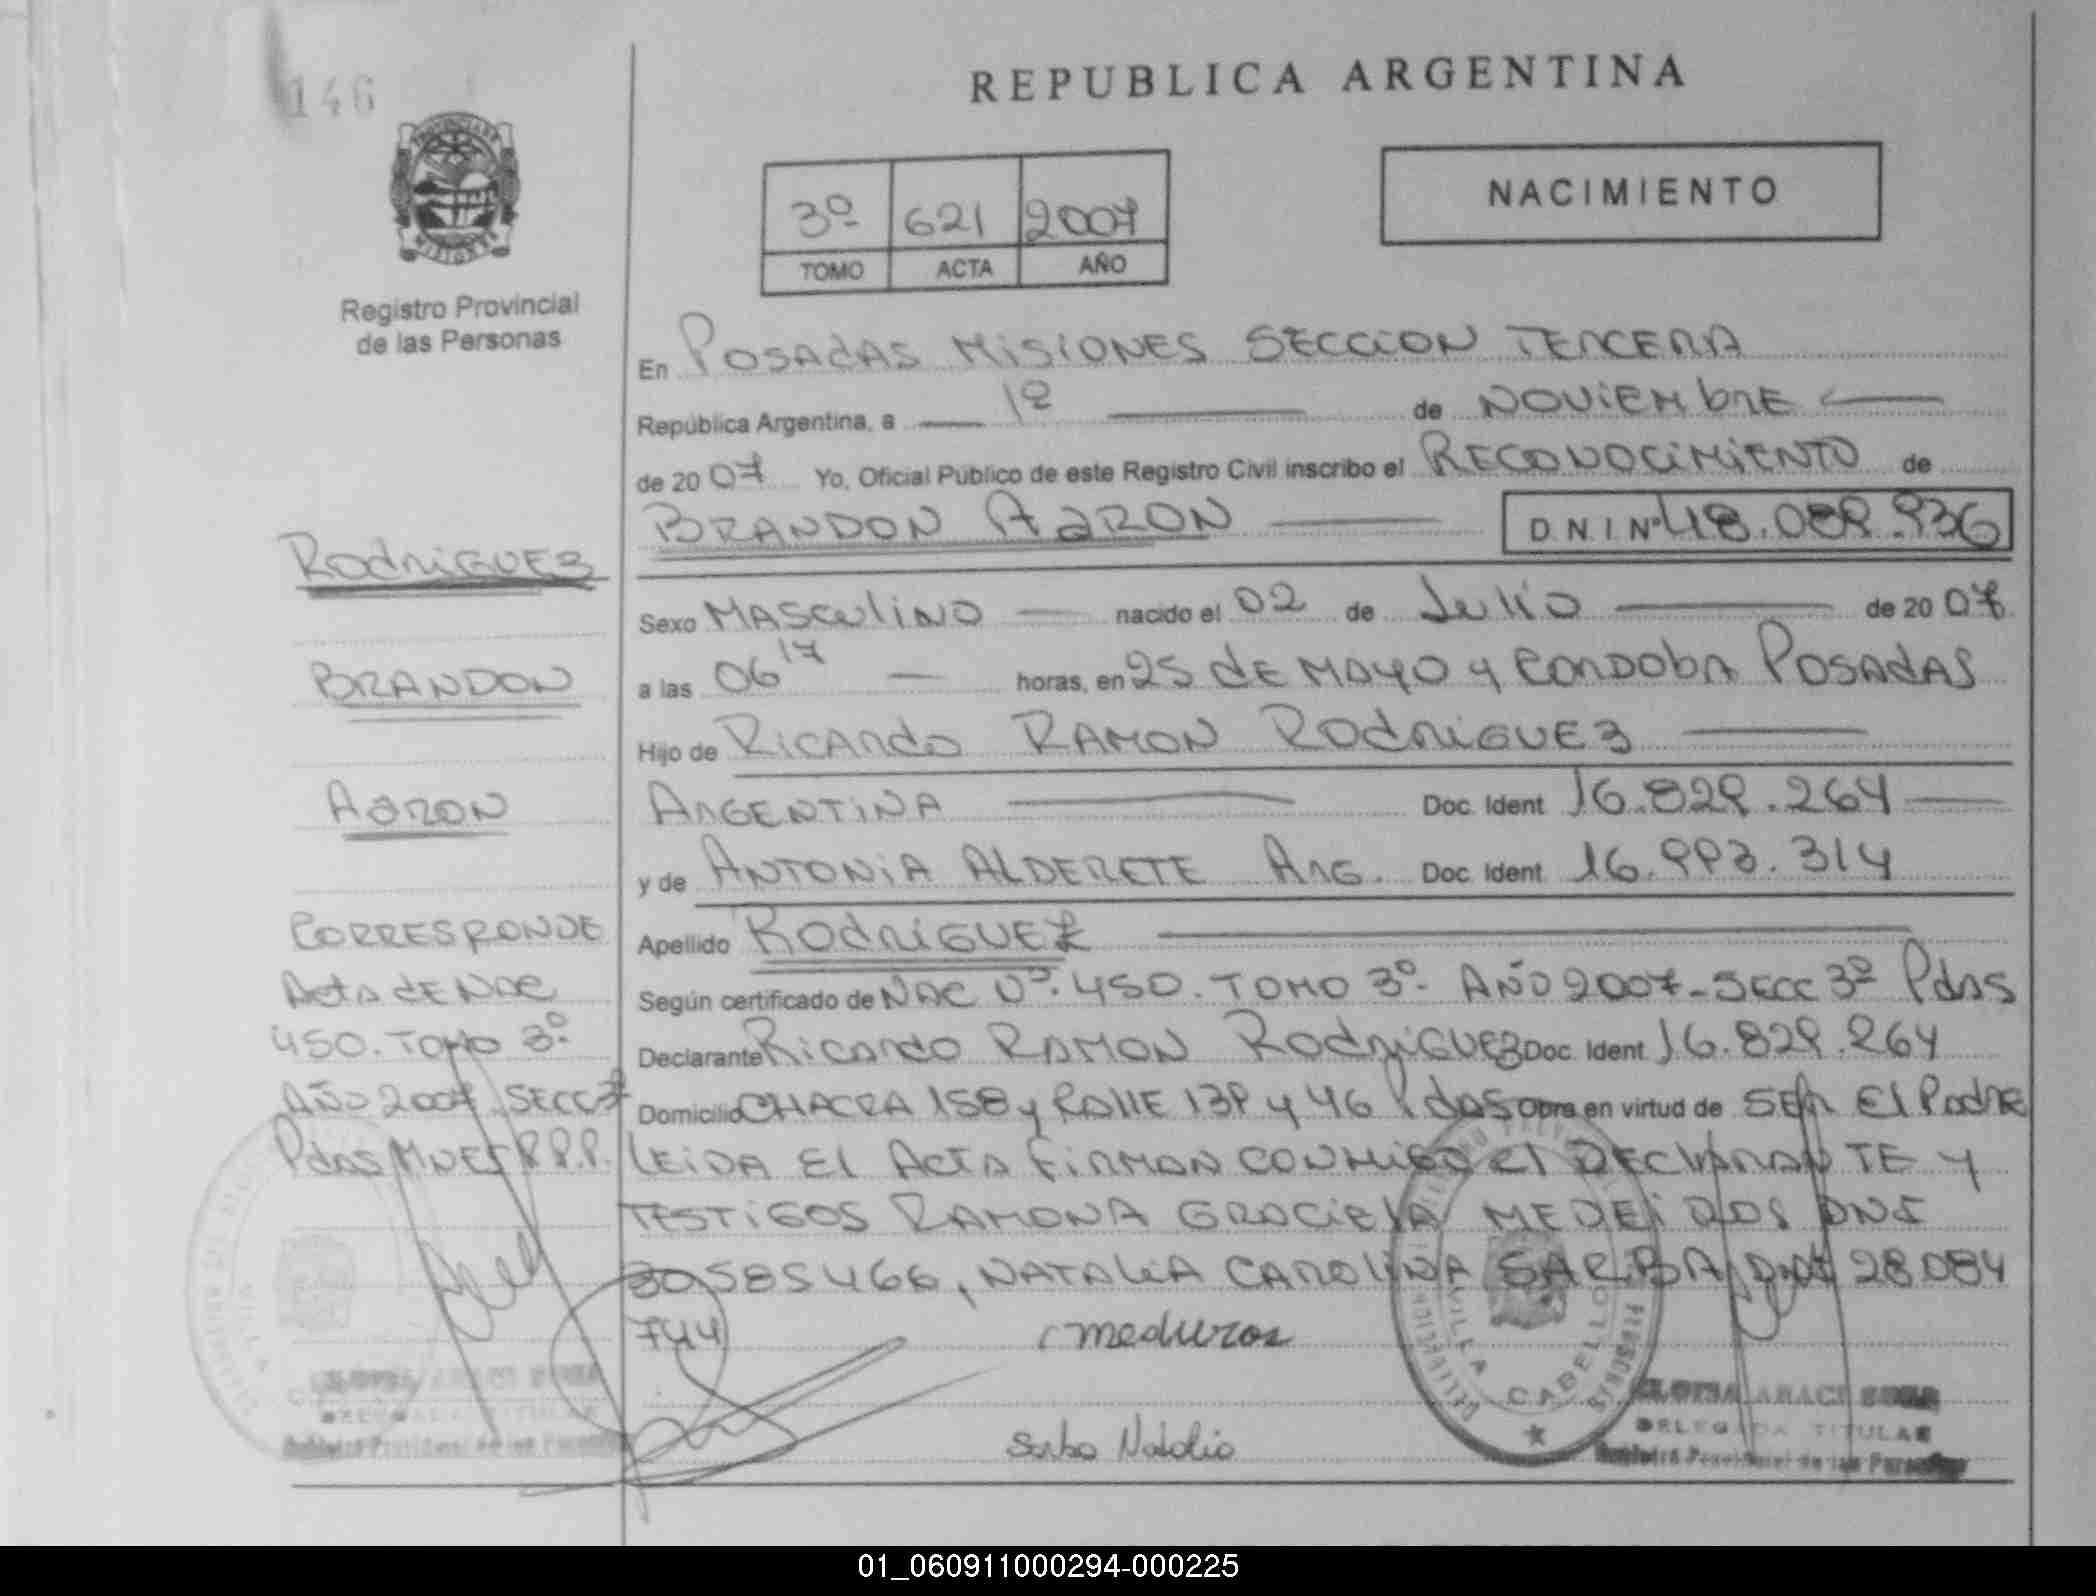 146
REPUBLICA ARGENTINA
3º 621 2007
TOMO ACTA AÑO
NACIMIENTO
Registro Provincial
de las Personas
En POSADAS MISIONES SECCION TERCERA
República Argentina, a 1º de NOVIEMBRE
de 20 07 Yo, Oficial Público de este Registro Civil inscribo el RECONOCIMIENTO de
BRANDON AARON D.N.I Nº 48.089.936
RODRIGUEZ
Sexo MASCULINO nacido el 02 de JULIO de 20 07
BRANDON
a las 06 17 horas, en 25 DE MAYO Y CORDOBA POSADAS
Hijo de RICARDO RAMON RODRIGUEZ
AARON
ARGENTINA Doc. Ident 16.829.264
y de ANTONIA ALDERETE ARG. Doc. Ident 16.993.314
CORRESPONDE
Apellido RODRIGUEZ
ACTA DE NAC
Según certificado de NAC Nº. 450. TOMO 3º. AÑO 2007-SECC 3º Pdas
450. TOMO 3º.
Declarante RICARDO RAMON RODRIGUEZ Doc. Ident 16.829.264
AÑO 2007. SECC 3º
Domicilio CHACRA 158 y CALLE 139 y 46 Pdas Obra en virtud de SER EL PADRE
Pdas MNES R.P.P.
LEIDA EL ACTA FIRMAN CONMIGO EL DECLARANTE Y
TESTIGOS RAMONA GRACIELA MEDEIROS DNI
30585466, NATALIA CAROLINA SARBA DNI 28084
744
VILLA CABELLO
DELEGADA TITULAR
Registro Provincial de las Personas
DELEGADA TITULAR
Registro Provincial de las Personas
01_060911000294-000225